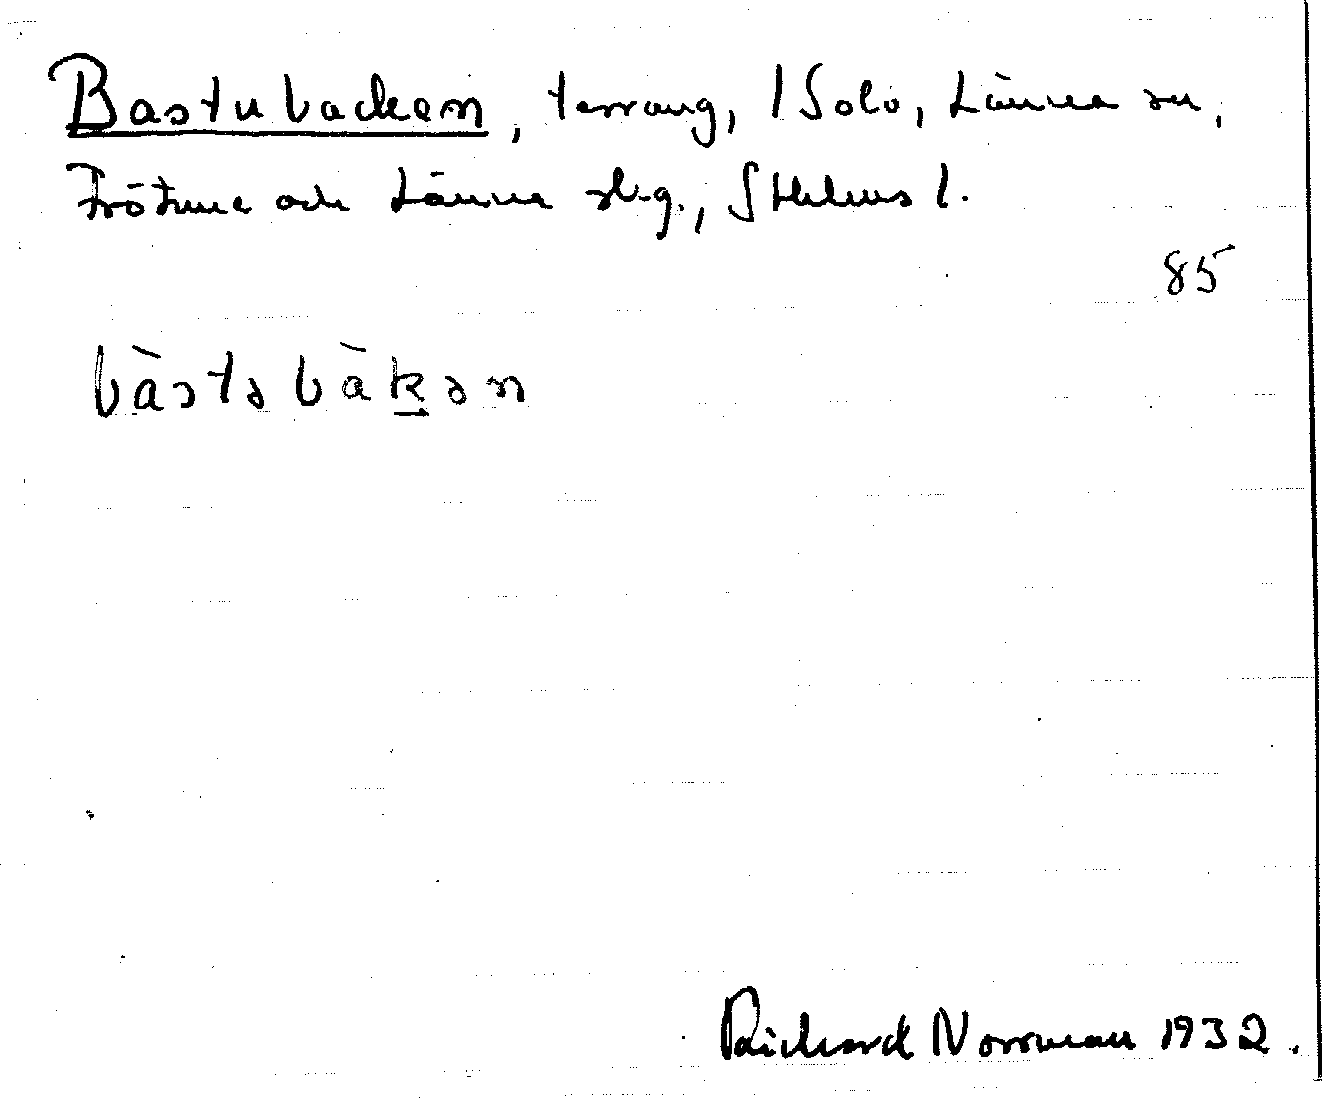 Bastubacken, terräng, 1 Solö, Länna sn,
Frötuna och Länna slg., Sthlms l.
85
bàstəbàk̲ən
Richard Norrman 1932.